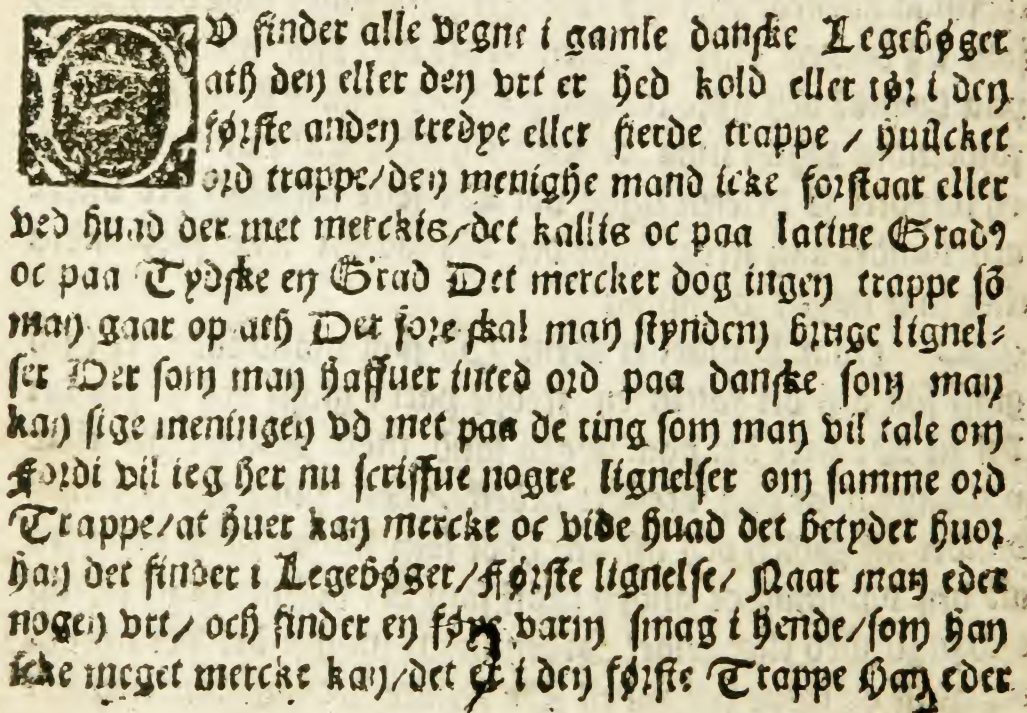 DV finder alle vegne i gamle danske Legebøger
ath den eller den vrt er hed kold eller tør i den
første anden tredye eller fierde trappe / huilcket
ord trappe / den menighe mand icke forstaar eller
ved huad der met merckis / det kallis oc paa latine Gradꝰ
oc paa Tydske en Grad Det mercker dog ingen trappe sō
man gaar op ath Der fore skal man stynden bruge lignel⸗
ser Der som man haffuer inted ord paa danske som man
kan sige meningen vd met paa de ting som man vil tale om
Fordi vil ieg her nu scriffue nogre lignelser om samme ord
Trappe / at huer kan mercke oc vide huad det betyder huor
han det finder i Legebøger / første lignelse / Naar man eder
nogen vrt / och finder en føye varm smag i hende / som han
icke meget mercke kan / det er i den første Trappe Han eder